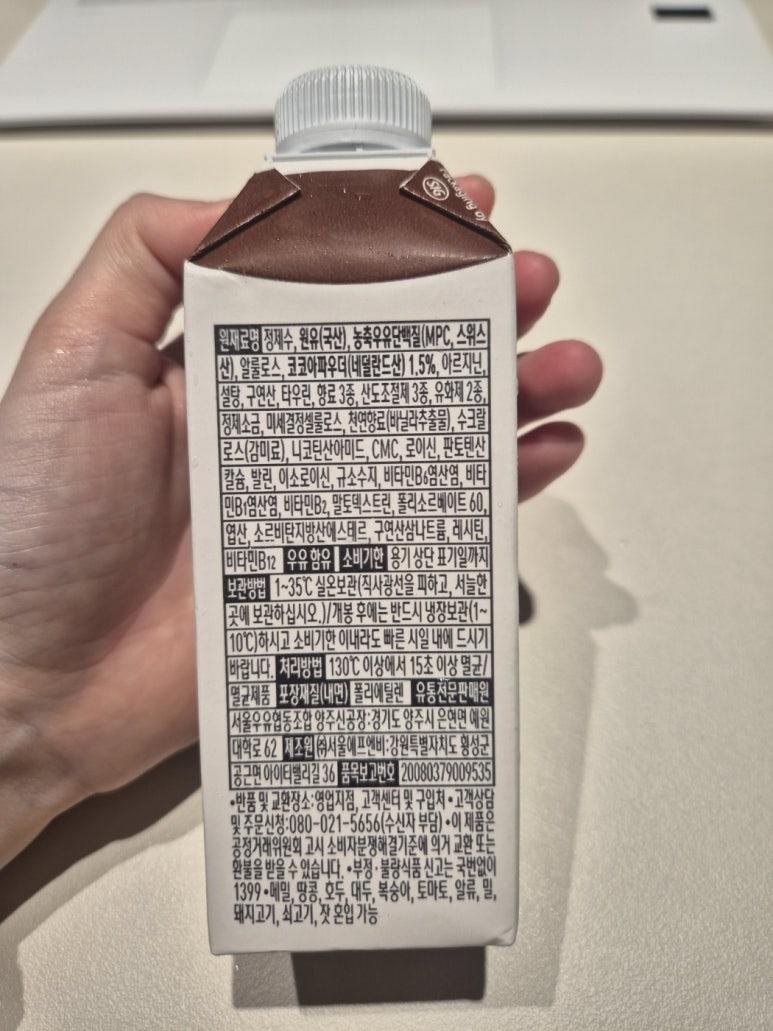 SIG
원재료명 정제수, 원유(국산), 농축우유단백질(MPC, 스위스
산), 알룰로스, 코코아파우더(네덜란드산) 1.5%, 아르지닌,
설탕, 구연산, 타우린, 향료 3종, 산도조절제 3종, 유화제 2종,
정제소금, 미세결정셀룰로스, 천연향료(바닐라추출물), 수크랄
로스(감미료), 니코틴산아미드, CMC, 로이신, 판토텐산
칼슘, 발린, 이소로이신, 규소수지, 비타민B6염산염, 비타
민B1염산염, 비타민B2, 말토덱스트린, 폴리소르베이트 60,
엽산, 소르비탄지방산에스테르, 구연산삼나트륨, 레시틴,
비타민B12 우유 함유 소비기한 용기 상단 표기일까지
보관방법 1~35℃ 실온보관(직사광선을 피하고, 서늘한
곳에 보관하십시오.)/개봉 후에는 반드시 냉장보관(1~
10℃)하시고 소비기한 이내라도 빠른 시일 내에 드시기
바랍니다. 처리방법 130℃ 이상에서 15초 이상 멸균/
멸균제품 포장재질(내면) 폴리에틸렌 유통전문판매원
서울우유협동조합 양주신공장:경기도 양주시 은현면 예원
대학로 62 제조원 ㈜서울에프엔비:강원특별자치도 횡성군
공근면 아이티밸리길 36 품목보고번호 20080379009535
•반품 및 교환장소:영업지점, 고객센터 및 구입처 •고객상담
및 주문신청:080-021-5656(수신자 부담) •이 제품은
공정거래위원회 고시 소비자분쟁해결기준에 의거 교환 또는
환불을 받을 수 있습니다. •부정·불량식품 신고는 국번없이
1399 •메밀, 땅콩, 호두, 대두, 복숭아, 토마토, 알류, 밀,
돼지고기, 쇠고기, 잣 혼입 가능